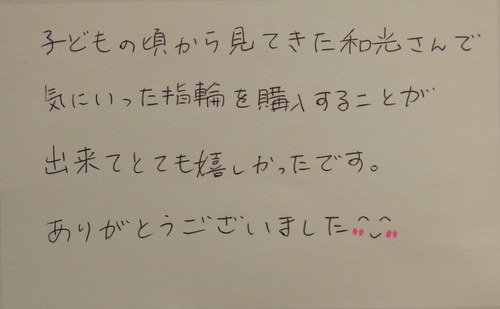 子どもの頃から見てきた和光さんで
気にいった指輪を購入することが
出来てとても嬉しかったです。
ありがとうございました